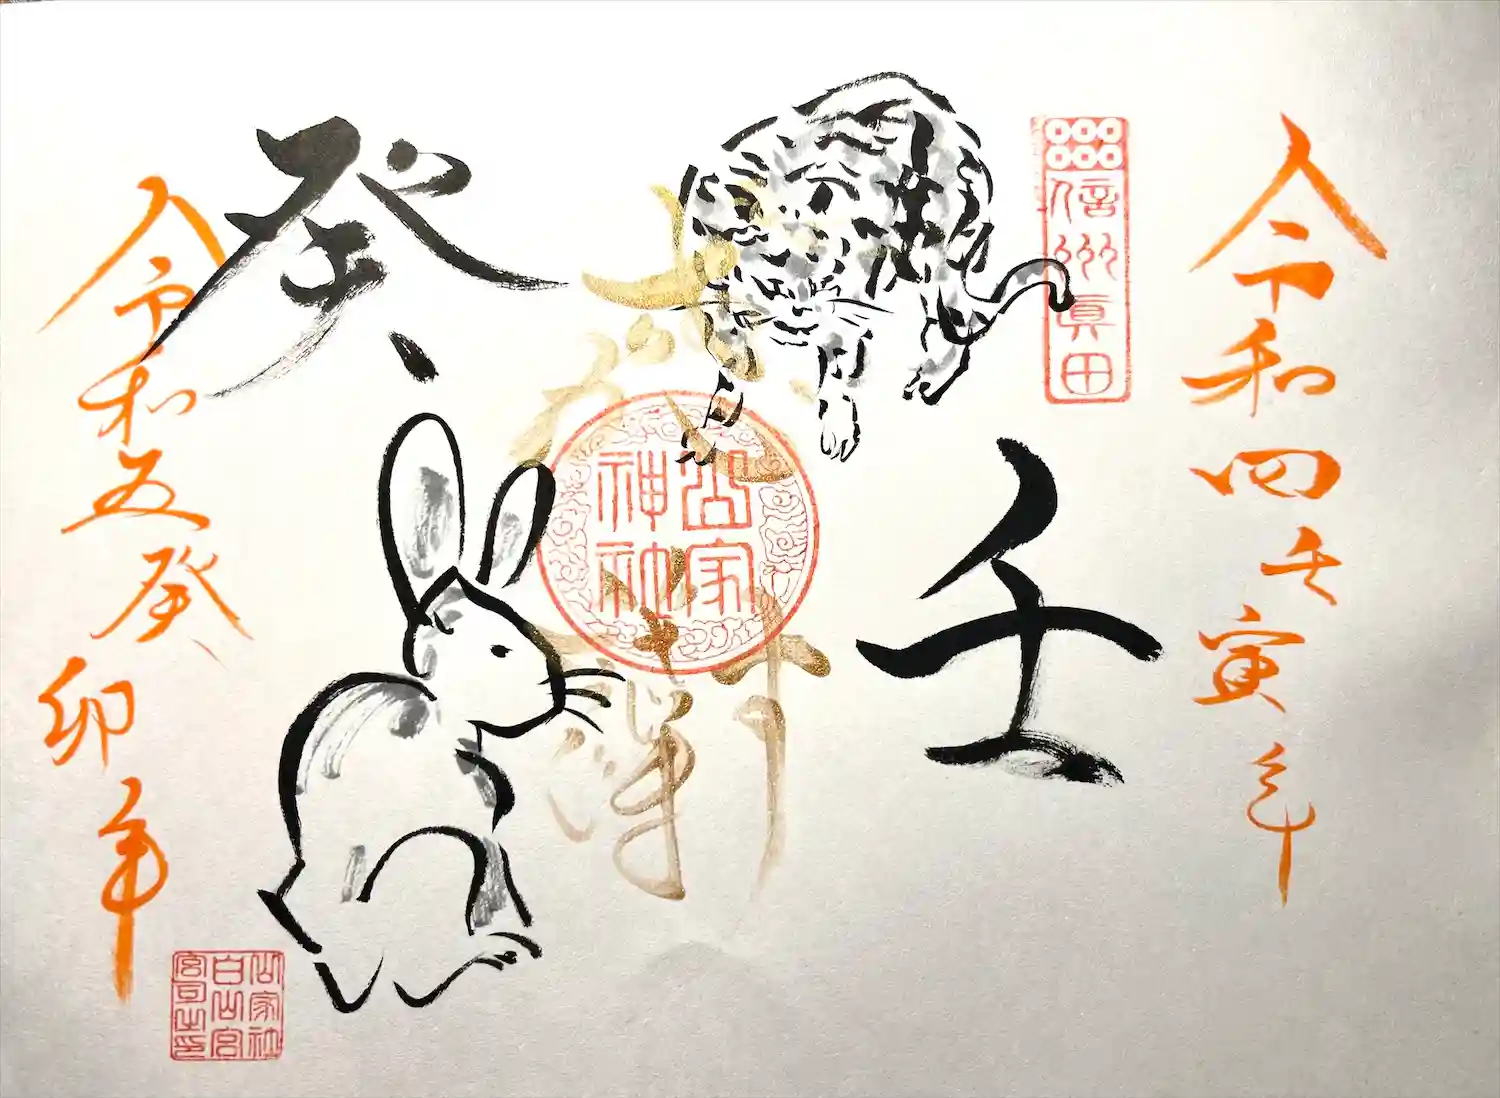 令和四壬寅年
信州真田
壬
山家
神社
癸
令和五癸卯年
山家社
白山宮
宮司之印